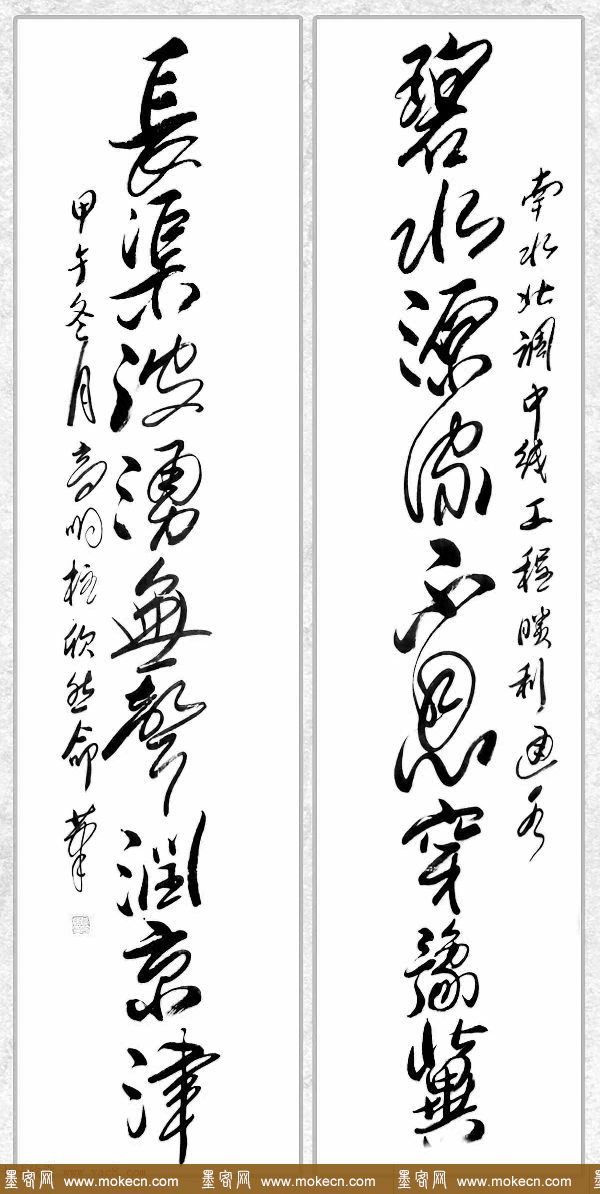 南水北調中线工程勝利通水
碧水源不息穿豫冀
長渠波湧無聲潤京津
甲午冬月高明柱欣然命筆
墨客网 www.mokecn.com 墨客网 www.mokecn.com 墨客网 www.mokecn.com